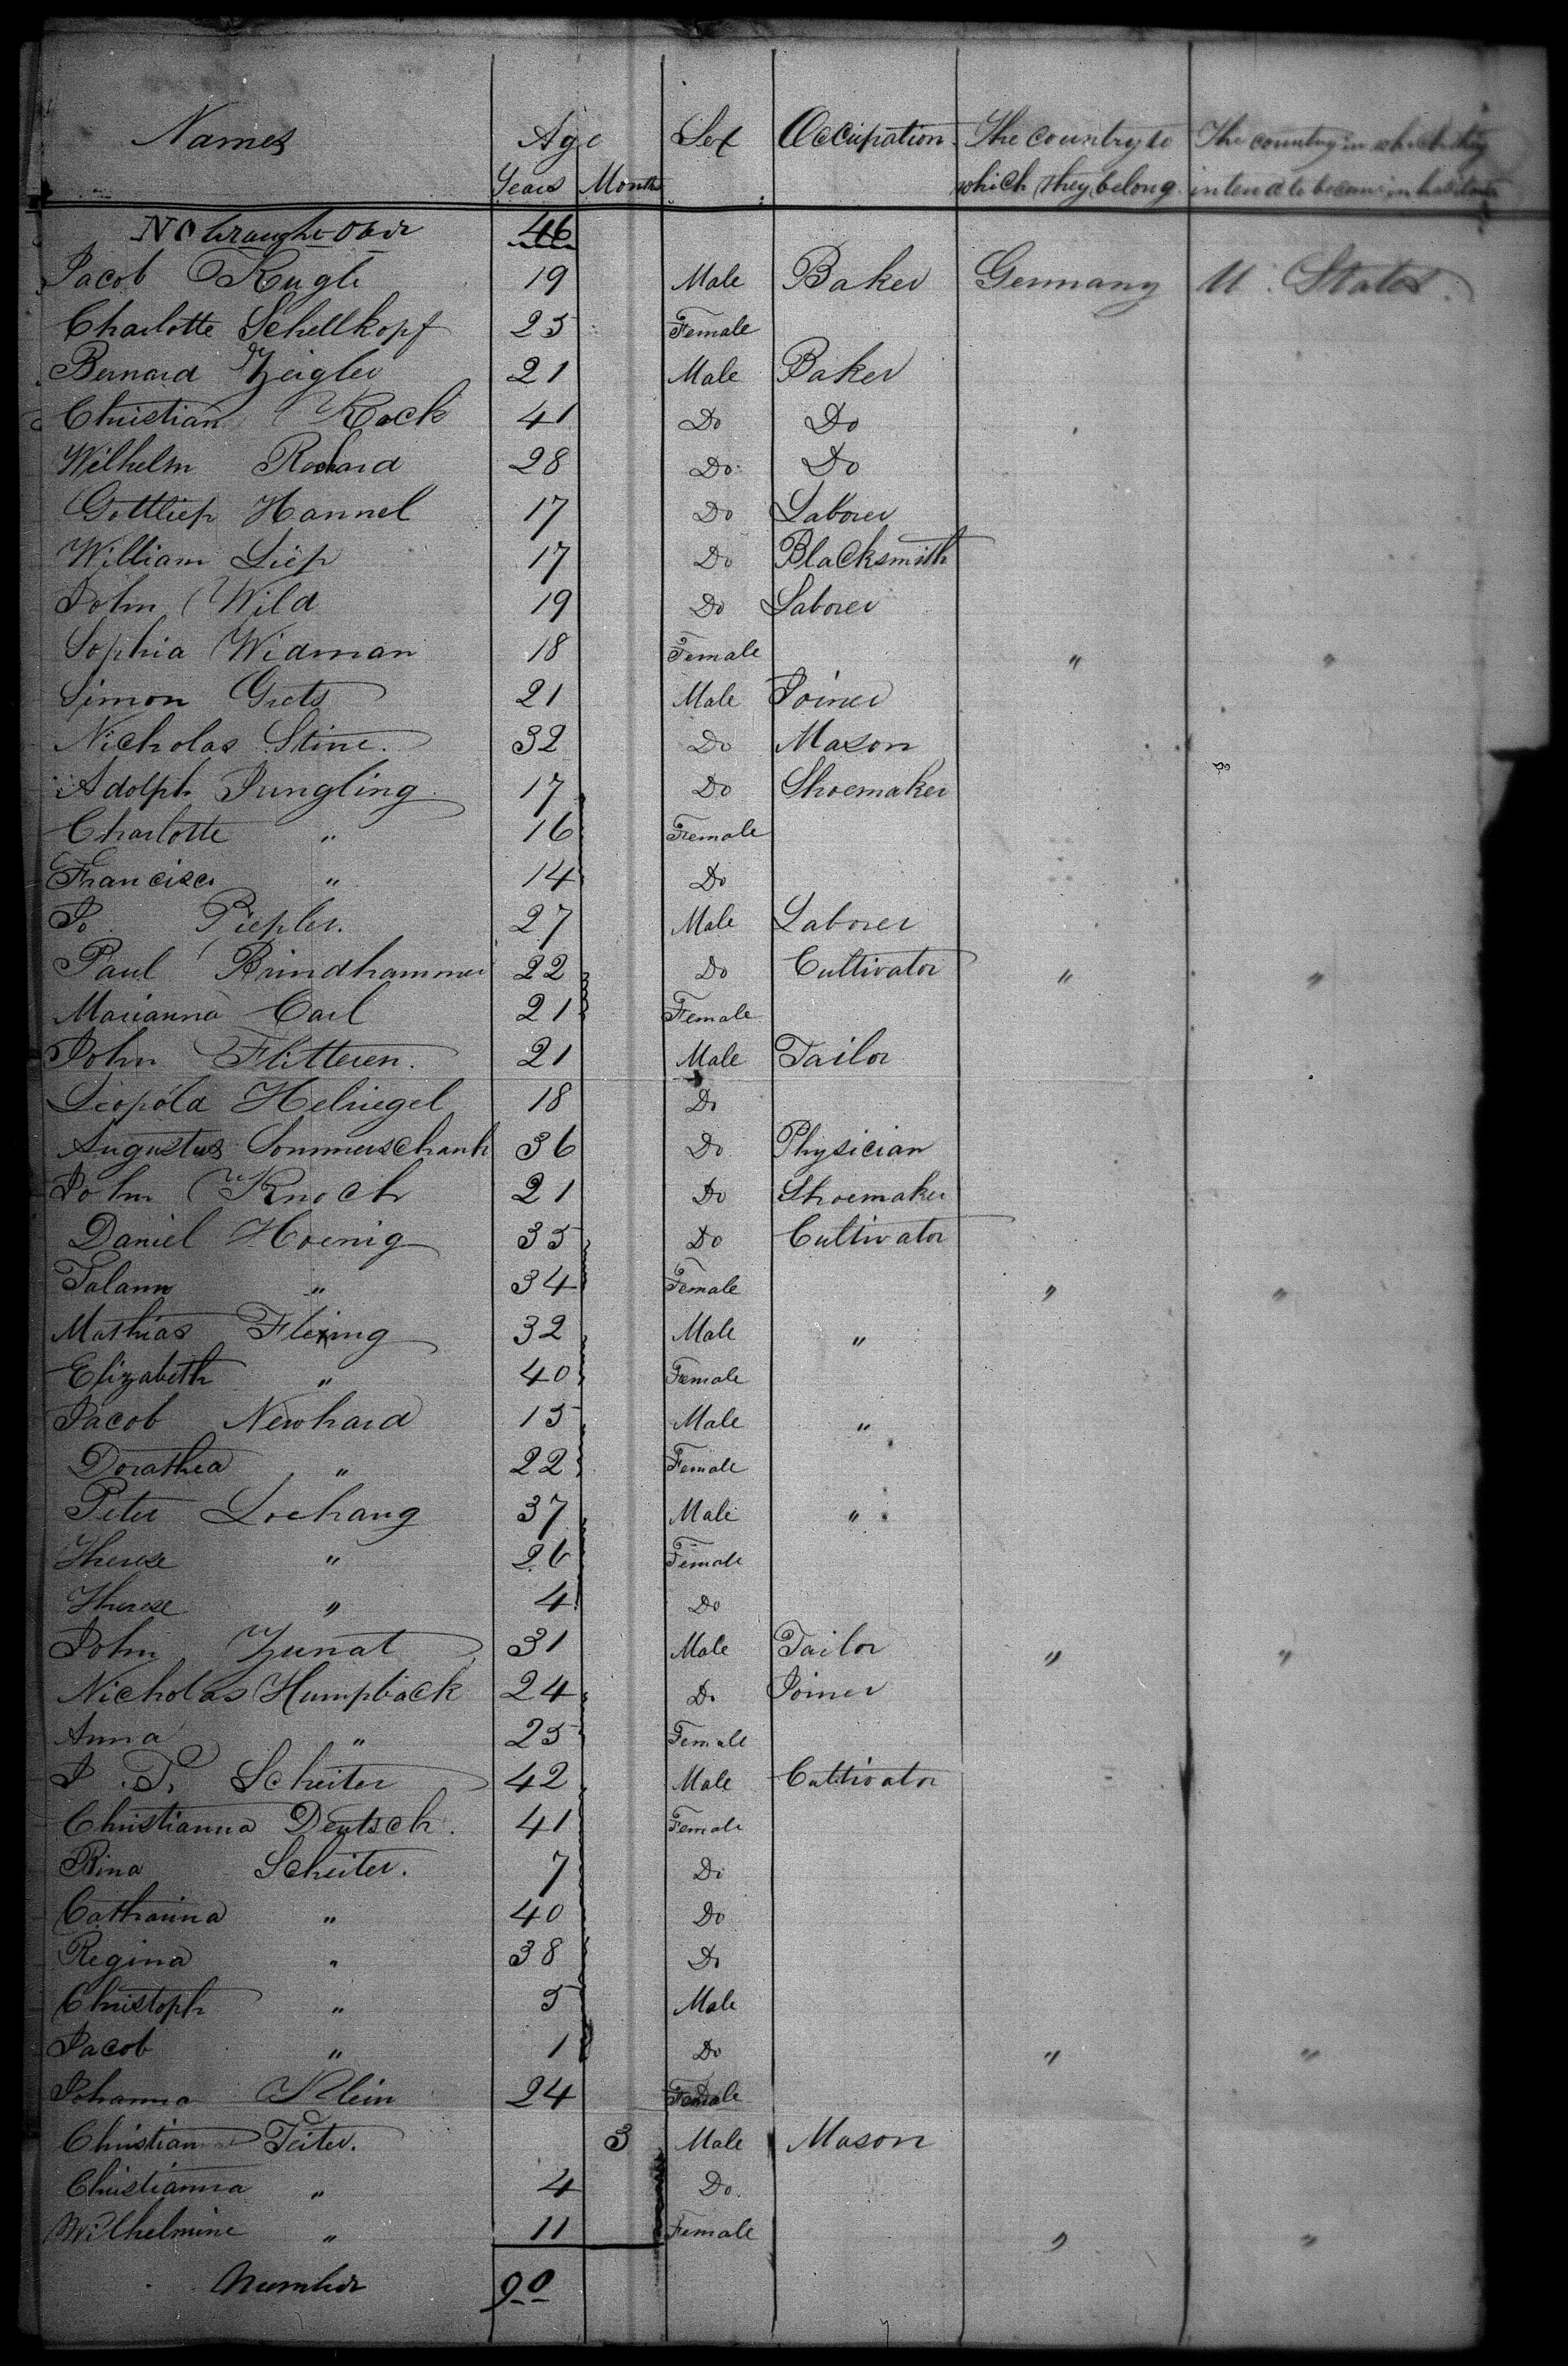 Names Age Sex Occupation. The country to The country in which they
Years Months which they belong. intend to become inhabitants
No brought over 46
Jacob Kugle 19 Male Baker Germany U. States.
Charlotte Schellkopf 25 Female
Bernard Zeigler 21 Male Baker
Christian Rock 41 Do Do
Wilhelm 28 Do Do
Gottliep Hannel 17 Do Laborer
William Liep 17 Do Blacksmith
John Wild 19 Do Laborer
Sophia Widman 18 Female " "
Simon Grets 21 Male Joiner
Nicholas Stine. 32 Do Mason
Adolph Jungling 17 Do Shoemaker Do
Charlotte " 16 Female
Francisca " 14 Do
Jo Piepler. 27 Male Laborer
Paul Brindhammer 22 Do Cultivator " "
Marianna Carl 21 Female
John Flitteren. 21 Male Tailor
Leopold Helriegel 18 Do
Augustus Sommerschank 36 Do Physician
John Knoch 21 Do Shoemaker
Daniel Hoenig 35 Do Cultivator
Talann " 34 Female " "
Mathias Flexing 32 Male "
Elizabeth " 40 Female
Jacob Newhard 15 Male "
Dorathea " 22 Female
Peter Lochang 37 Male "
Therese " 26 Female
Therese " 4 Do
John Zunat 31 Male Tailor " "
Nicholas Humpback 24 Do Joiner
Anna " 25 Female
J. T. Scheiter 42 Male Cultivator
Christianna Deutsch. 41 Female
Rina Scheiter. 7 Do
Catharina " 40 Do
Regina " 38 Do
Christoph " 5 Male
Jacob " 1 Do " "
Johanna Klein 24 Female
Christian Teiter. 3 Male Mason
Christianna " 4 Do.
Wilhelmine " 11 Female " "
Number 90